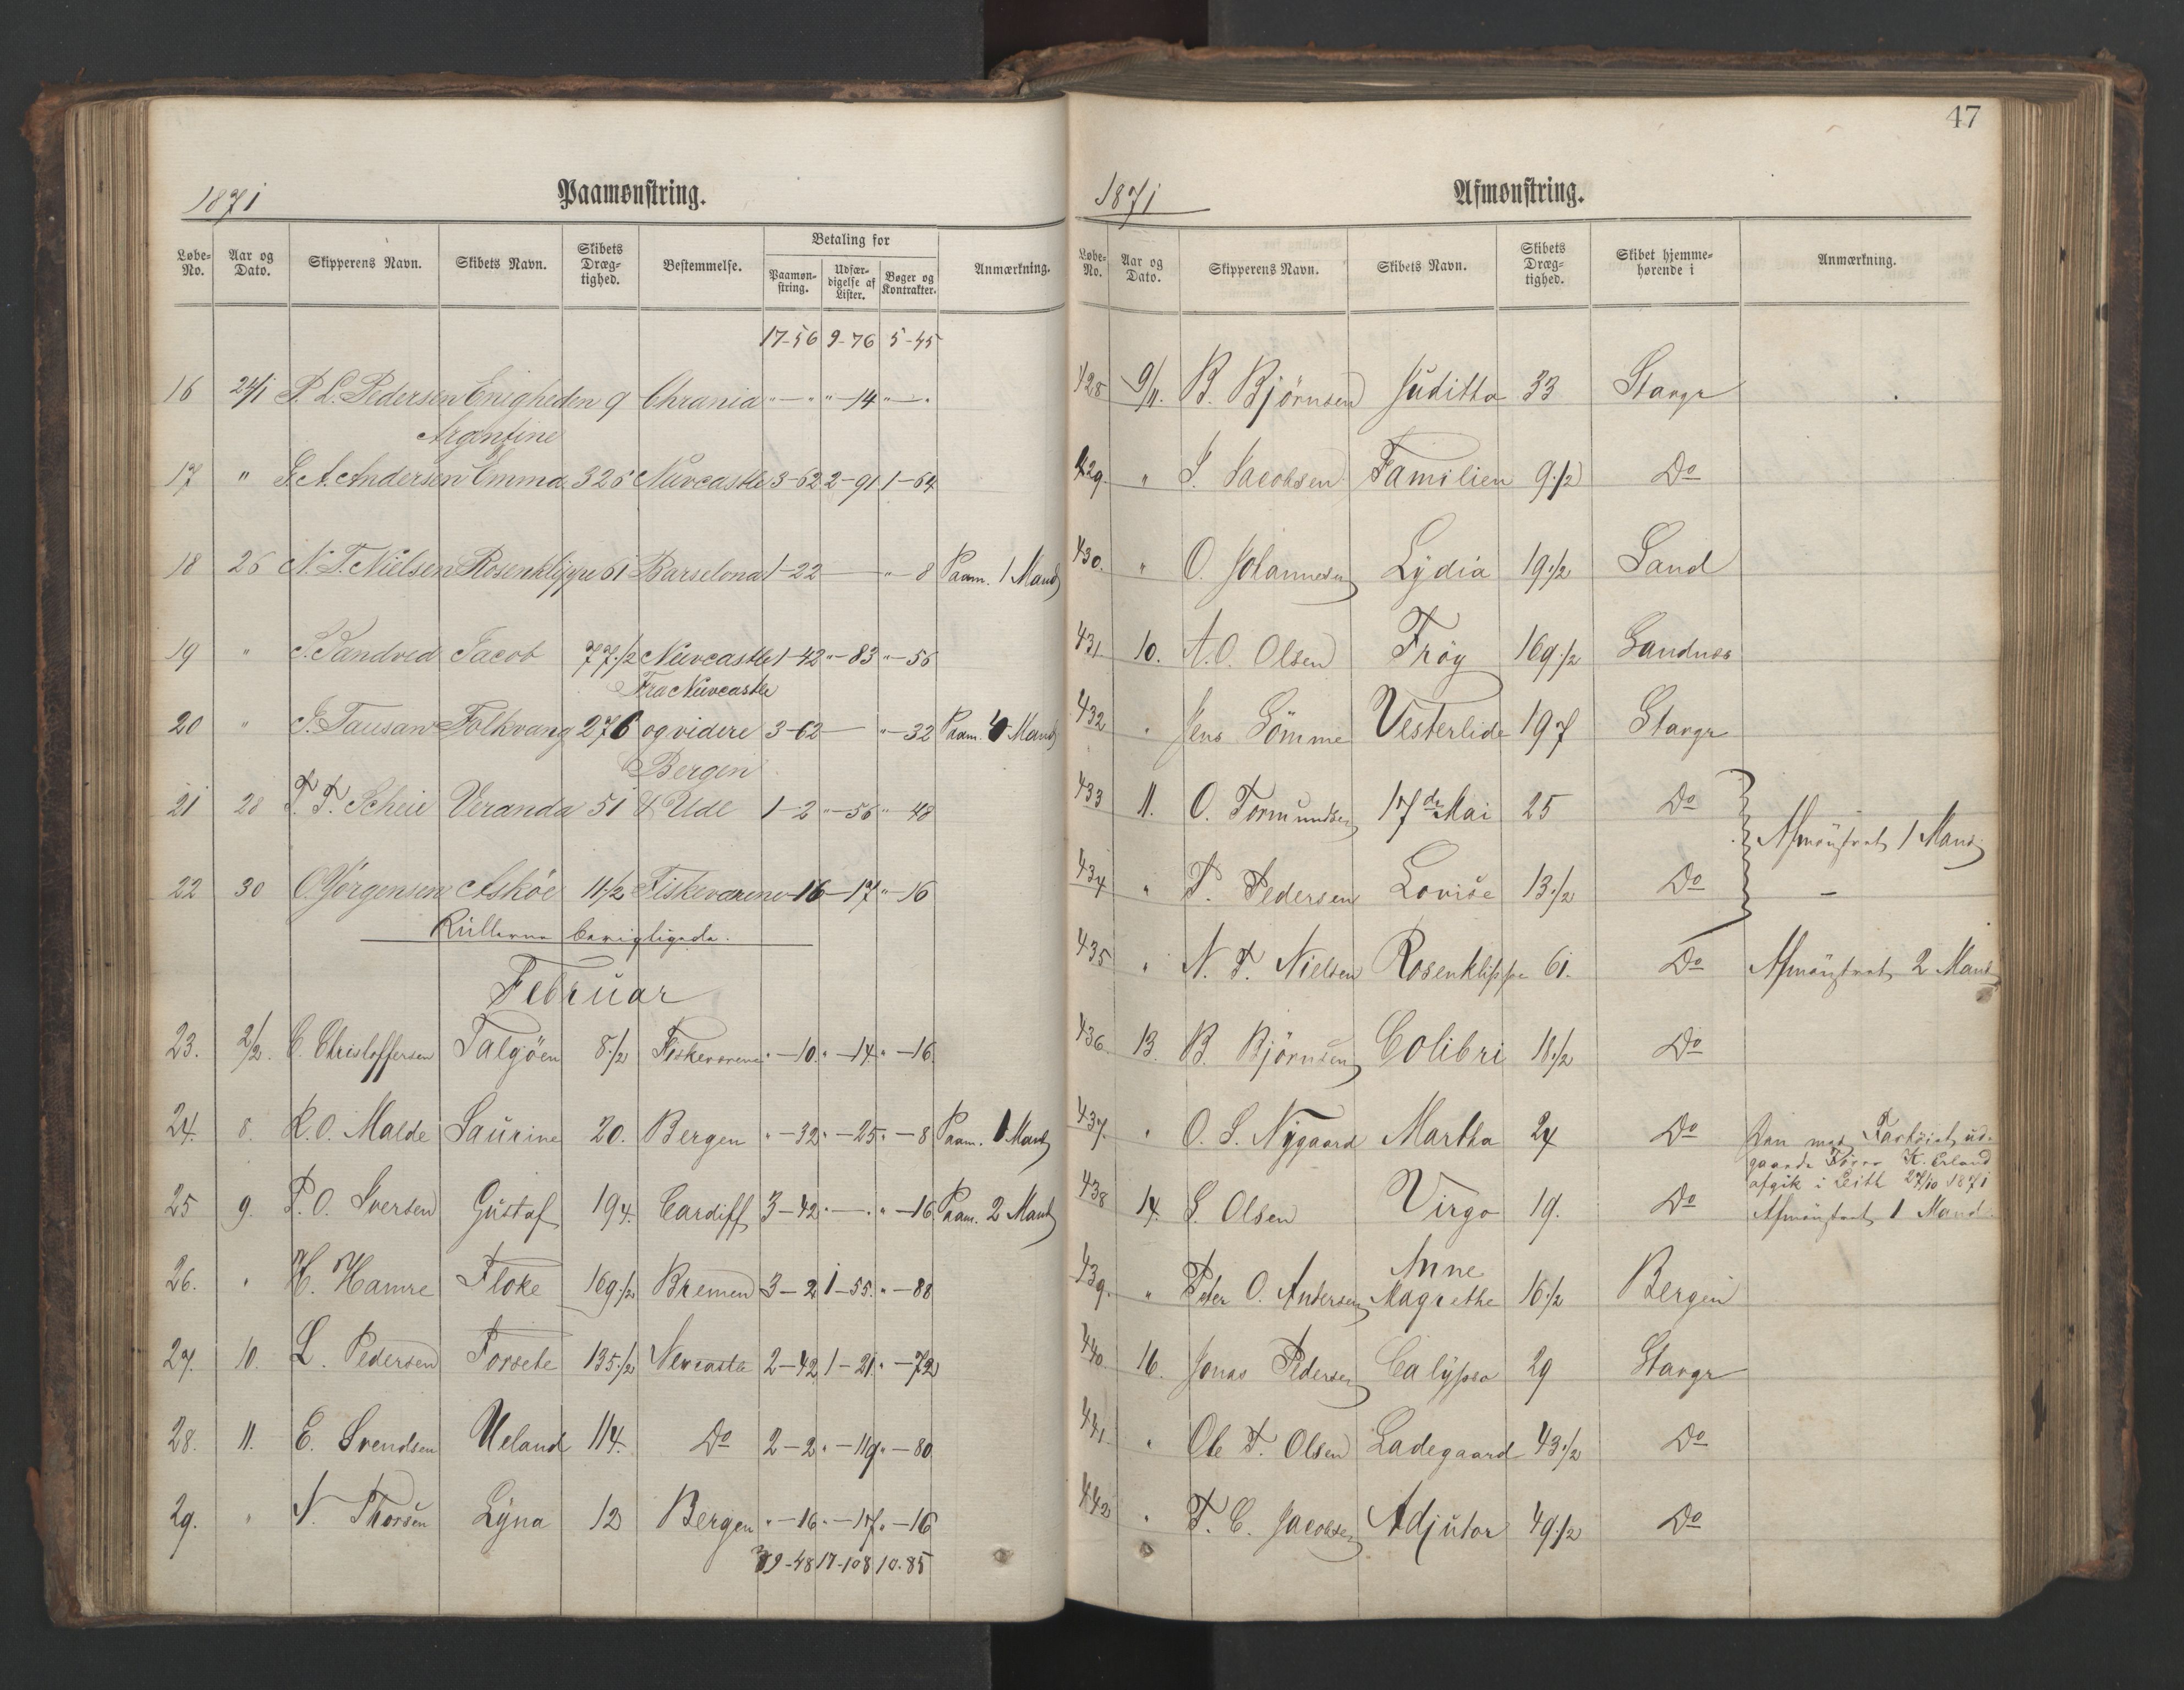 1871 Paamønstring.
Løbe-No. Aar og Dato. Skipperens Navn. Skibets Navn. Skibets Dræg-tighed. Bestemmelse. Betaling for Paamøn-string. Udfær-digelse af Lister. Bøger og Kontrakter. Anmærkning.
17-56 9-76 5-45
16 24/1 P. L. Pedersen Enigheden 9 Chrania " — " " —14 " — "
Argentine
17 " G. A. Andersen Emma 326 Nuvcastle 3-62 2-91 1-64
18 26 N. T. Nielsen Rosenklippe 61 Barselona 1-22 — " — 8 Paam. 1 Mand
19 " S. Sandved Jacob 77 1/2 Nuvcastle 1-42 " —83 " —56
Fra Nuvcastle
20 " J. Tausan Folkvang 276 og videre 3-62 — " —32 Paam. 4 Mand
Bergen
21 28 T. T. Scheie Veranda 51 & Ude 1-2 " —56 " 48
22 30 O. Jörgensen Asköe 11 1/2 Fiskevarene " —16 —17 " —16
Rullerne berigtigede.
Februar
23. 2/2. C. Christoffersen Talgjöen 8 1/2 Fiskevarene " —10 " —14 " —16
24. 8. R. O. Malde Laurine 20. Bergen " —32 " —25 " —8 Paam. 1 Mand
25 9. P. O. Iversen Gustaf 194. Cardiff 3—42 " — " " —16 Paam. 2 Mand
26. " H. Hamre Floke 169 1/2 Bremen 3—2 1—55 " —88
27. 10. L. Pedersen Forsete 135 1/2 Nevcastle 2—42 1—21 " —72
28. 11. E. Svendsen Ueland 114. Do 2—2 " —119 " —80
29. " N. Thorsen Lyna 12 Bergen " —16 " —17 " —16
39-48 17-108 10.85
47
1871 Afmønstring.
Løbe-No. Aar og Dato. Skipperens Navn. Skibets Navn. Skibets Dræg-tighed. Skibet hjemme-hørende i Anmærkning.
428 9/11. B. Björnsen Juditha 33 Stavgr
429. " J. Jacobsen Familien 9 1/2 Do
430. " O. Johannesen Lydia 19 1/2 Sand
431. 10. A. O. Olsen Fröy 169 1/2 Sandnes
432 " Jens Sömme Vesterlide 197 Stavgr
433 11. O. Tormundsen 17de Mai 25 Do Afmönstret 1 Mand
434 " T. Pedersen Lovise 13 1/2 Do —
435 " N. T. Nielsen Rosenklippe 61. Do Afmönstret 2 Mand
436. 13. B. Björnsen Colibri 18 1/2 Do
437. " O. S. Nygaard Martha 24 Do Den med Fartöiet ud-
gaaende Förer K. Erland
afgik i Leith 27/10 1871
438 14. S. Olsen Virgo 19. Do Afmönstret 1 Mand.
439. " Peter O. Andersen Anne Magrethe 16 1/2 Bergen
440 16. Jonas Pedersen Calypso 29 Stavgr
441 " Ole T. Olsen Ladegaard 43 1/2 Do
442 " T. C. Jacobsen Adjutor 49 1/2 Do